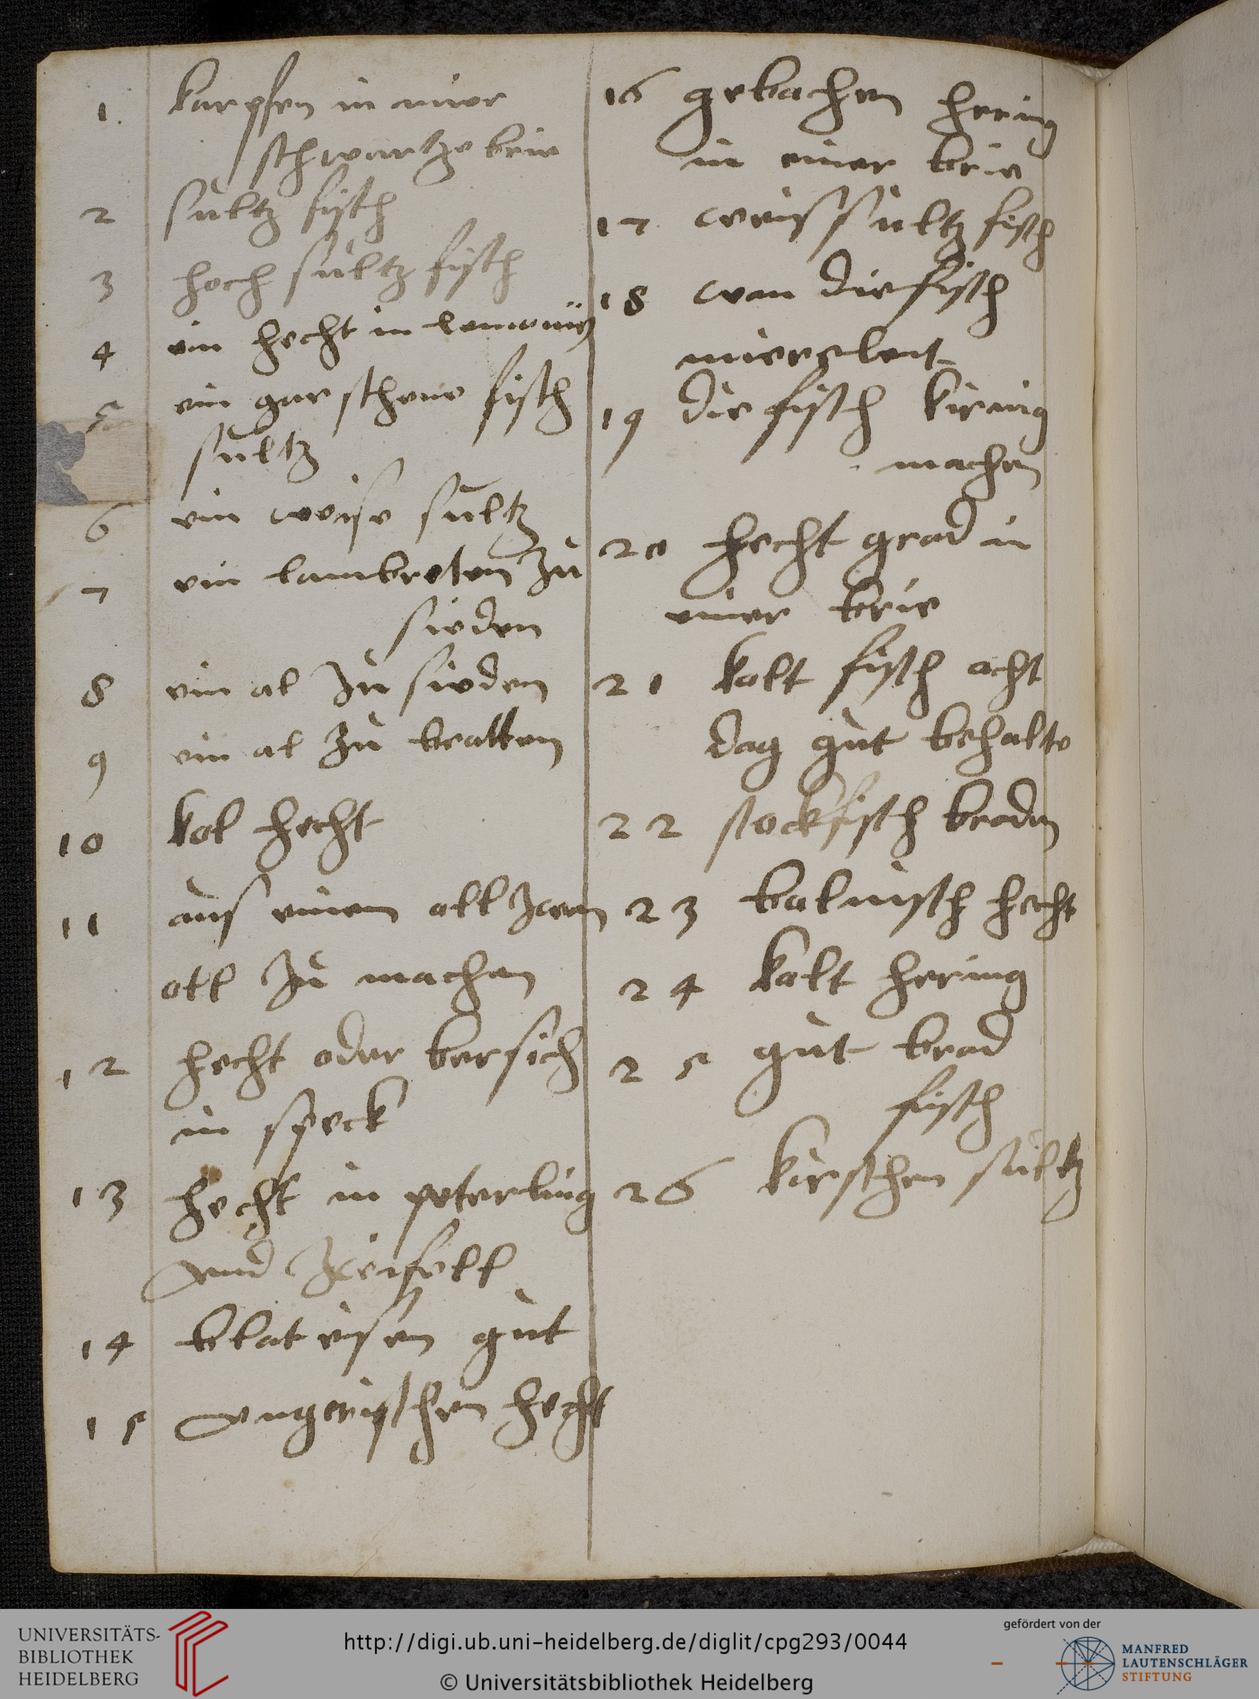 1 karpfen in einer
schwartze brie
2 sultz fisch
3 hoch sultz fisch
4 ein hecht in lemonig
5 ein gar schene fisch
sultz
6 ein weise sultz
7 ein lambreten zu
sieden
8 ein al zu sieden
9 ein al zu bratten
10 kol hecht
11 aus einem all zwen
all zu machen
12 hecht oder bersich
in speck
13 hecht in peterling
und zwifell
14 blateisen gut
15 ungerischen hecht
16 gebachen hering
in einer brie
17 weissultz fisch
18 wan die fisch
19 die fisch kirnig
machen
20 hecht grad in
einer brie
21 kalt fisch acht
dag gut behalte
22 stockfisch braden
23 bolnisch hecht
24 kalt hering
25 gut brad
fisch
26 kirschen sultz
UNIVERSITÄTS-
BIBLIOTHEK
HEIDELBERG
http://digi.ub.uni-heidelberg.de/diglit/cpg293/0044
© Universitätsbibliothek Heidelberg
gefördert von der
MANFRED
LAUTENSCHLÄGER
STIFTUNG